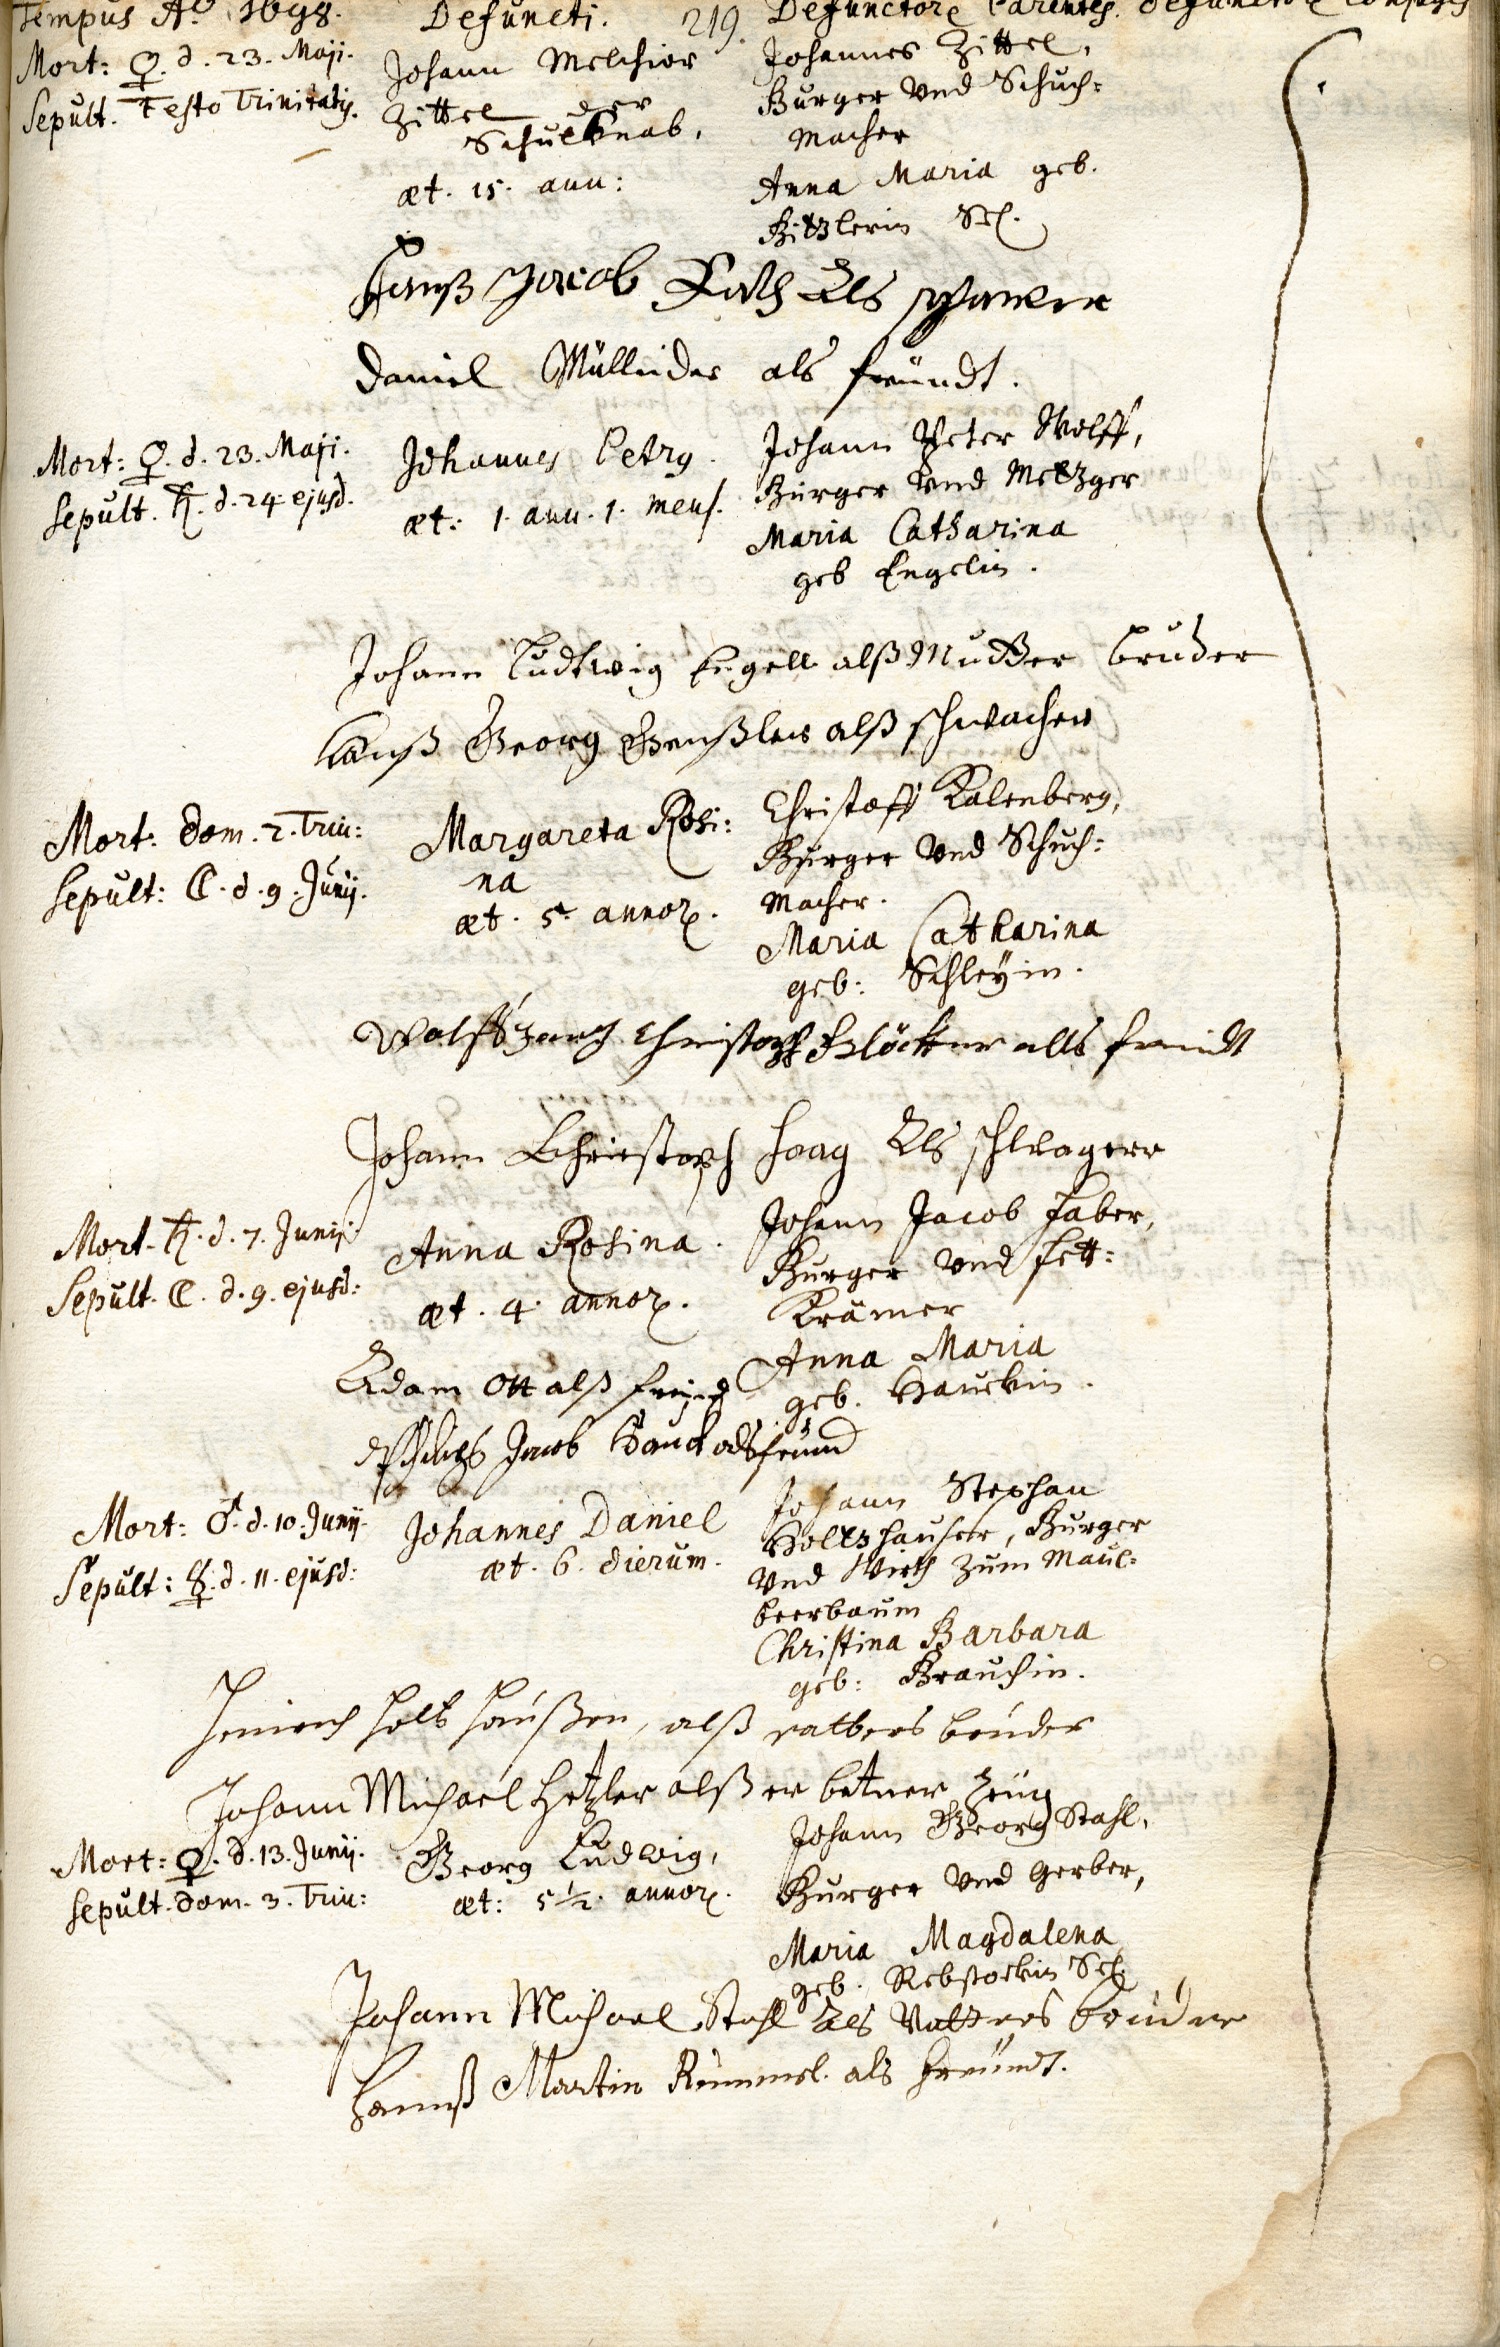 Tempus Aº 1698. Defuncti. 219. Defunctorē Parentes. Defunctorē Conjuges
Mort: ♀. d. 23. Maji.
Sepult. Festo Trinitatis.
Johann Melchior
Zittel der
Schulknab.
æt. 15. ann:
Johannes Zittel,
Burger vnd Schuch-
macher
Anna Maria geb.
Bitzlerin Sel.
Hanß Jacob Roth Als schwacher
Daniel Mülleider als freündt.
Mort: ♀. d. 23. Maji.
Sepult. ♄. d. 24. ejusd.
Johannes Petry.
æt: 1. ann. 1. mens.
Johann Peter Wolff,
Burger vnd Metzger
Maria Catharina
geb Engelin.
Johann Ludtwig Engell alß Mutter bruder
Hanß Georg alß schwacher
Mort: Dom. 2. Trin:
Sepult: ☾. d. 9. Junij.
Margareta Rosi:
na
æt. 5. annorꝝ.
Christoff Kalenberg,
Burger vnd Schuch:
macher.
Maria Catharina
geb: Schleÿin.
Wolffgang Christoph Blöckner alls freindt
Johann Christoph Haag Als schwagerr
Mort. ♄. d. 7. Junij.
Sepult. ☾. d. 9. ejusd:
Anna Rosina.
æt. 4. annorꝝ.
Johann Jacob Faber,
Burger vnd Fett:
Krämer
Anna Maria
geb. Hauckin.
Adam Ott alß freind
Jacob Hauck als freind
Mort: ♂. d. 10. Junij.
Sepult: ☿. d. 11. ejusd:
Johannes Daniel
æt. 6. dierum.
Johann Stephan
Holtzhauser, Burger
vnd Wirth zum Maul-
beerbaum
Christina Barbara
geb: Brauchin.
Heinrich Holtz Haußen, alß vatters bruder
Johann Michael Hetzler alß er betner zeüg
Mort: ♀. d. 13. Junij.
Sepult. Dom. 3. Trin:
Georg Ludwig,
æt: 5 ½. annorꝝ.
Johann Georg Stahl,
Burger vnd Gerber,
Maria Magdalena
geb. Rebstockin Sel.
Johann Michael Stahl Als Vatters bruder
Hannß Martin Rümmel als freündt.